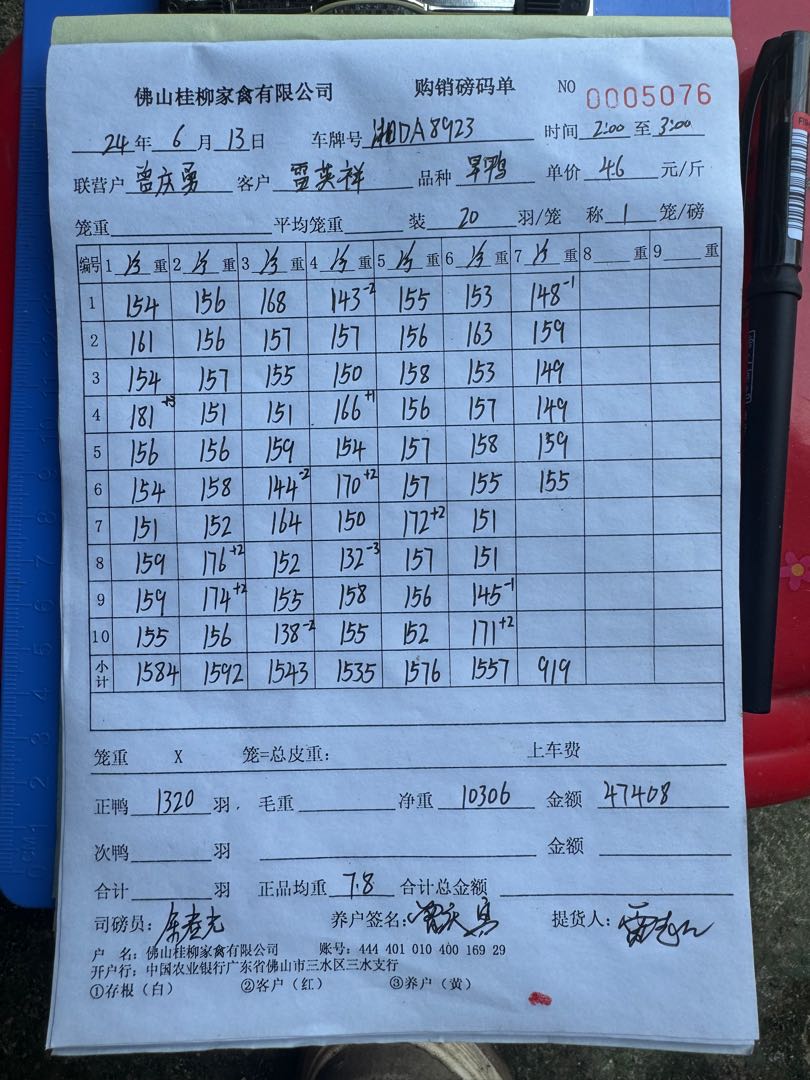 佛山桂柳家禽有限公司 购销磅码单 NO 0005076
24年 6月 13日 车牌号 湘DA8923 时间 2:00 至 3:00
联营户 曾庆勇 客户 雷英祥 品种 旱鸭 单价 4.6 元/斤
笼重 平均笼重 装 20 羽/笼 称 1 笼/磅
编号 1 净 重 2 净 重 3 净 重 4 净 重 5 净 重 6 净 重 7 净 重 8 重 9 重
1 154 156 168 143-2 155 153 148-1
2 161 156 157 157 156 163 159
3 154 157 155 150 158 153 149
4 181+3 151 151 166+1 156 157 149
5 156 156 159 154 157 158 159
6 154 158 144-2 170+2 157 155 155
7 151 152 164 150 172+2 151
8 159 176+2 152 132-3 157 151
9 159 174+2 155 158 156 145-1
10 155 156 138-2 155 152 171+2
小计 1584 1592 1543 1535 1576 1557 919
笼重 X 笼=总皮重: 上车费
正鸭 1320 羽. 毛重 净重 10306 金额 47408
次鸭 羽 金额
合计 羽 正品均重 7.8 合计总金额
司磅员: 养户签名: 提货人:
户 名: 佛山桂柳家禽有限公司 账号: 444 401 010 400 169 29
开户行: 中国农业银行广东省佛山市三水区三水支行
①存根(白) ②客户(红) ③养户(黄)